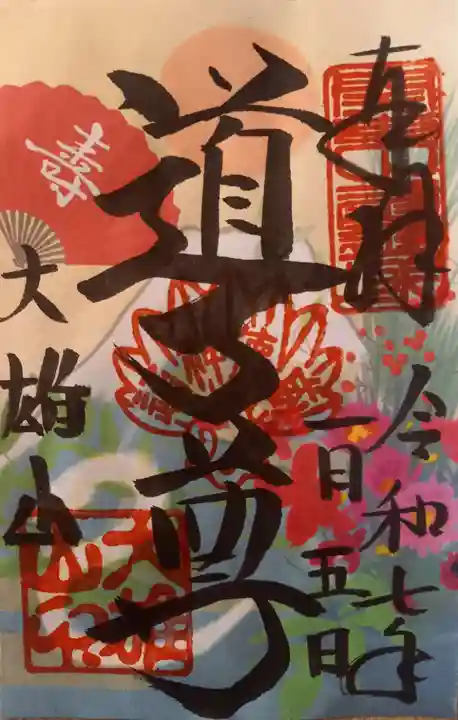 奉拝
令和七年
一月五日
道了尊
大雄山
壽
大雄
山印